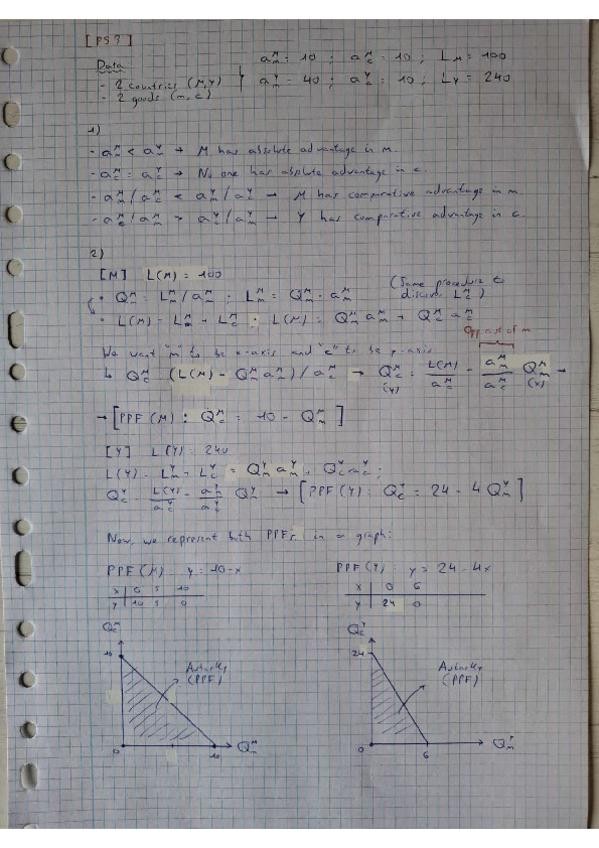 [PS?]
Data
- 2 countries (M, Y)
- 2 goods (m, c)
a_m^M = 10 ; a_c^M = 10 ; L_M = 100
a_m^Y = 40 ; a_c^Y = 10 ; L_Y = 240
1)
- a_m^M < a_m^Y → M has absolute advantage in m.
- a_c^M = a_c^Y → No one has absolute advantage in c.
- a_m^M / a_c^M < a_m^Y / a_c^Y → M has comparative advantage in m.
- a_c^M / a_m^M > a_c^Y / a_m^Y → Y has comparative advantage in c.
2)
[M] L(M) = 100
• Q_m^M = L_m^M / a_m^M ; L_m^M = Q_m^M · a_m^M (Same procedure to
discover L_c^M)
• L(M) = L_m^M + L_c^M ; L(M) = Q_m^M a_m^M + Q_c^M a_c^M
Opp cost of m
We want "m" to be x-axis and "c" to be y-axis
↳ Q_c^M = (L(M) - Q_m^M a_m^M) / a_c^M → Q_c^M (y) = L(M) / a_c^M - a_m^M / a_c^M Q_m^M (x) →
→ [PPF (M) : Q_c^M = 10 - Q_m^M]
[Y] L(Y) = 240
L(Y) = L_m^Y + L_c^Y = Q_m^Y a_m^Y + Q_c^Y a_c^Y ;
Q_c^Y = L(Y) / a_c^Y - a_m^Y / a_c^Y Q_m^Y → [PPF (Y) : Q_c^Y = 24 - 4 Q_m^Y]
Now, we represent both PPFs in a graph:
PPF (M) : y = 10 - x
x | 0 5 10
y | 10 5 0
PPF (Y) : y = 24 - 4x
x | 0 6
y | 24 0
Q_c^M
10
Autarky
(PPF)
0
10
Q_m^M
Q_c^Y
24
Autarky
(PPF)
0
6
Q_m^Y